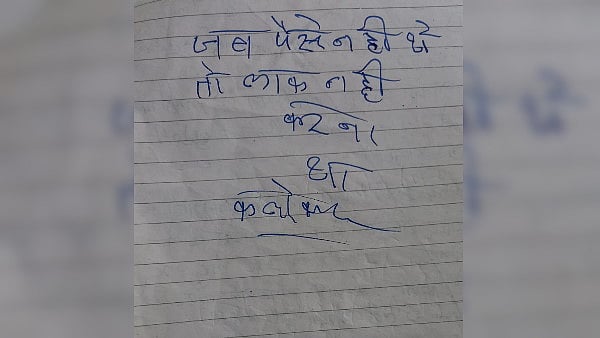 जब पैसे नही थे
तो लाक नही
करना
था
कलेकटर